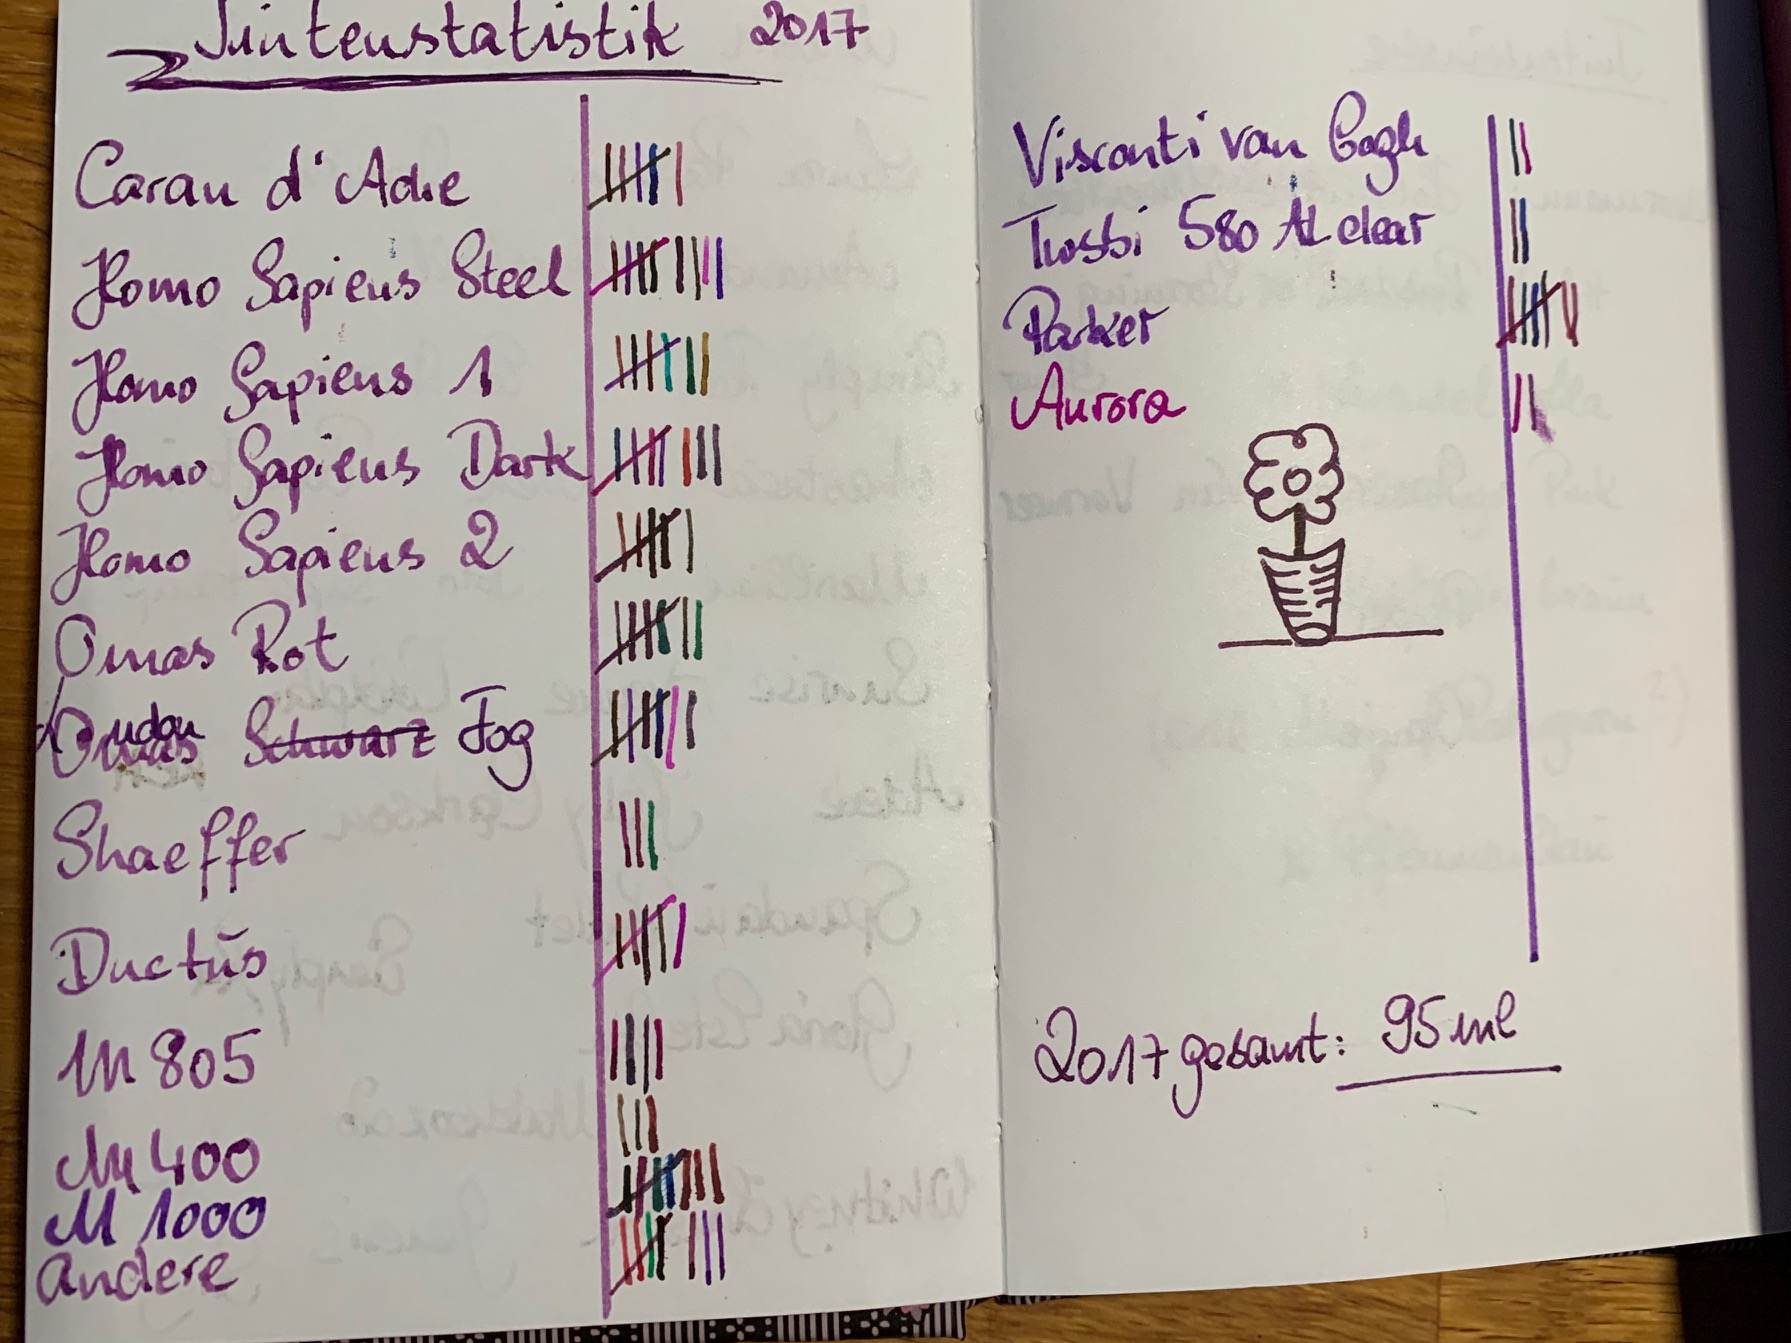 Tintenstatistik 2017
Caran d'Ache
Homo Sapiens Steel
Homo Sapiens 1
Homo Sapiens Dark
Homo Sapiens 2
Omas Rot
London Fog
Shaeffer
Ductus
M 805
M 400
M 1000
andere
Visconti van Gogh
Twsbi 580 AL clear
Parker
Aurora
2017 gesamt: 95 ml